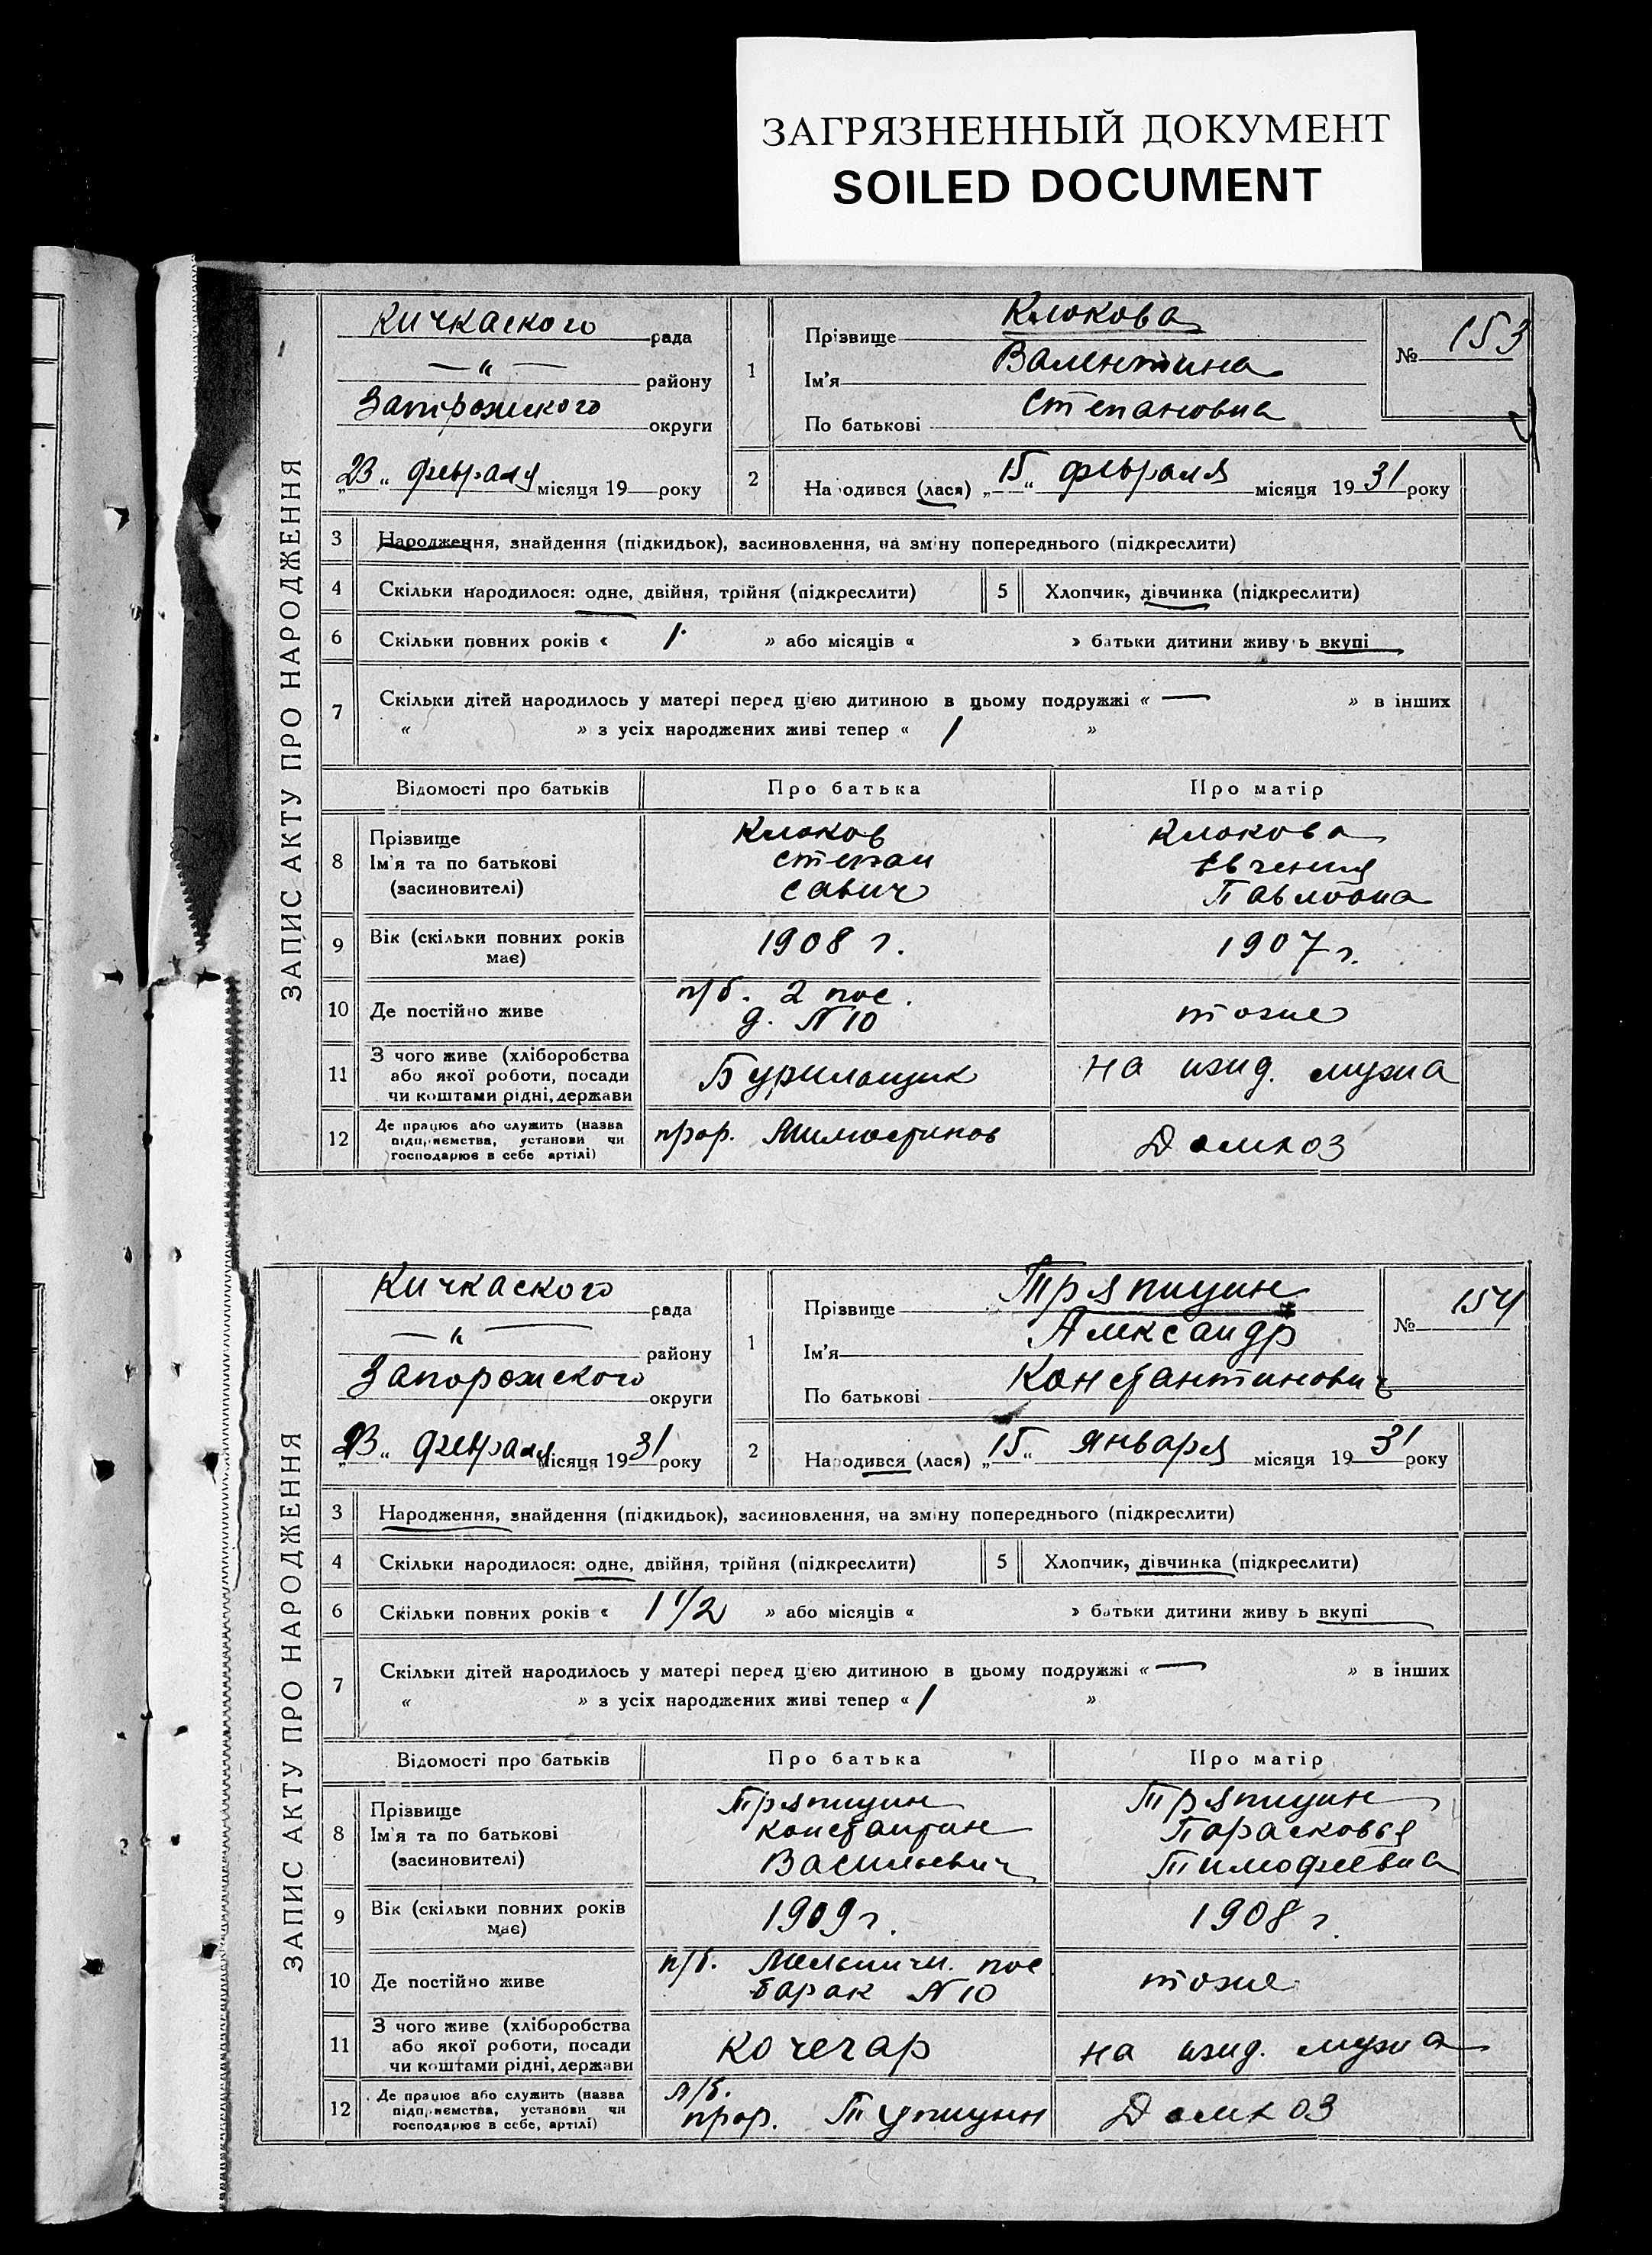 ЗАГРЯЗНЕННЫЙ ДОКУМЕНТ
SOILED DOCUMENT
ЗАПИС АКТУ ПРО НАРОДЖЕННЯ
Кичкаского рада
— " — району
Запорожского округи
„23“ февраля місяця 19 року
1 Прізвище Клюкова
Ім'я Валентина
По батькові Степановна
№ 153
2 Народився (лася) „15“ февраля місяця 1931 року
3 Народження, знайдення (підкидьок), засиновлення, на зміну попереднього (підкреслити)
4 Скільки народилося: одне, двійня, трійня (підкреслити) 5 Хлопчик, дівчинка (підкреслити)
6 Скільки повних років « 1. » або місяців « » батьки дитини живу ь вкупі
7 Скільки дітей народилось у матері перед цією дитиною в цьому подружжі « — » в інших
« » з усіх народжених живі тепер « 1 »
Відомості про батьків Про батька Про матір
8 Прізвище Клюков Клюкова
Ім'я та по батькові Степан Евгения
(засиновителі) Савич Павловна
9 Вік (скільки повних років має) 1908 г. 1907 г.
10 Де постійно живе п/б. 2 пос. тоже
д. N 10
11 З чого живе (хліборобства Бурильщик на ижд. мужа
або якої роботи, посади
чи коштами рідні, держави
12 Де працює або служить (назва прор. Домхоз
підприємства, установи чи
господарює в себе артілі)
ЗАПИС АКТУ ПРО НАРОДЖЕННЯ
Кичкаского рада
— " — району
Запорожского округи
„23“ февраля місяця 1931 року
1 Прізвище Тряпицин
Ім'я Александр
По батькові Константинович
№ 154
2 Народився (лася) „15“ января місяця 1931 року
3 Народження, знайдення (підкидьок), засиновлення, на зміну попереднього (підкреслити)
4 Скільки народилося: одне, двійня, трійня (підкреслити) 5 Хлопчик, дівчинка (підкреслити)
6 Скільки повних років « 1 1/2 » або місяців « » батьки дитини живу ь вкупі
7 Скільки дітей народилось у матері перед цією дитиною в цьому подружжі « — » в інших
« » з усіх народжених живі тепер « 1 »
Відомості про батьків Про батька Про матір
8 Прізвище Тряпицин Тряпицин
Ім'я та по батькові Константин Парасковья
(засиновителі) Васильевич Тимофеевна
9 Вік (скільки повних років має) 1909 г. 1908 г.
10 Де постійно живе п/б. пос тоже
барак N 10
11 З чого живе (хліборобства Кочегар на ижд. мужа
або якої роботи, посади
чи коштами рідні, держави
12 Де працює або служить (назва п/б. Домхоз
підприємства, установи чи прор.
господарює в себе, артілі)